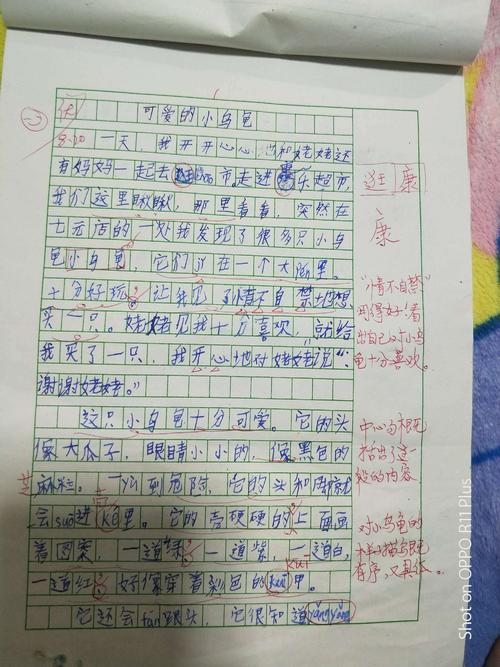 优
可爱的小乌龟
8.20 一天，我开开心心地和姥姥还
有妈妈一起去逛超市。走进康乐超市，
我们这里瞅瞅，那里看看，突然在
七元店的一处我发现了很多只小乌
龟小乌龟，它们趴在一个大
十分好玩。让我见了情不自禁地想
买一只。姥姥见我十分喜欢，就给
我买了一只，我开心地对姥姥说：“
谢谢姥姥。”
这只小乌龟十分可爱。它的头
像大瓜子，眼睛小小的，像黑色的
芝麻粒。一yù到危险，它的头和脚就
会suō进壳里。它的壳硬硬的上面画
着图案，一道绿 一道紫，一道白，
一道红 好像穿着彩色的kuī甲。
它还会tàn头，它很知道yǎngyǎng
逛 康
康
“情不自禁”
用得好！看
出自己对小乌
龟十分喜欢。
中心句概
括出了这一
段的内容
对小乌龟的
样子描写既
有序，又具体。
Shot on OPPO R11 Plus